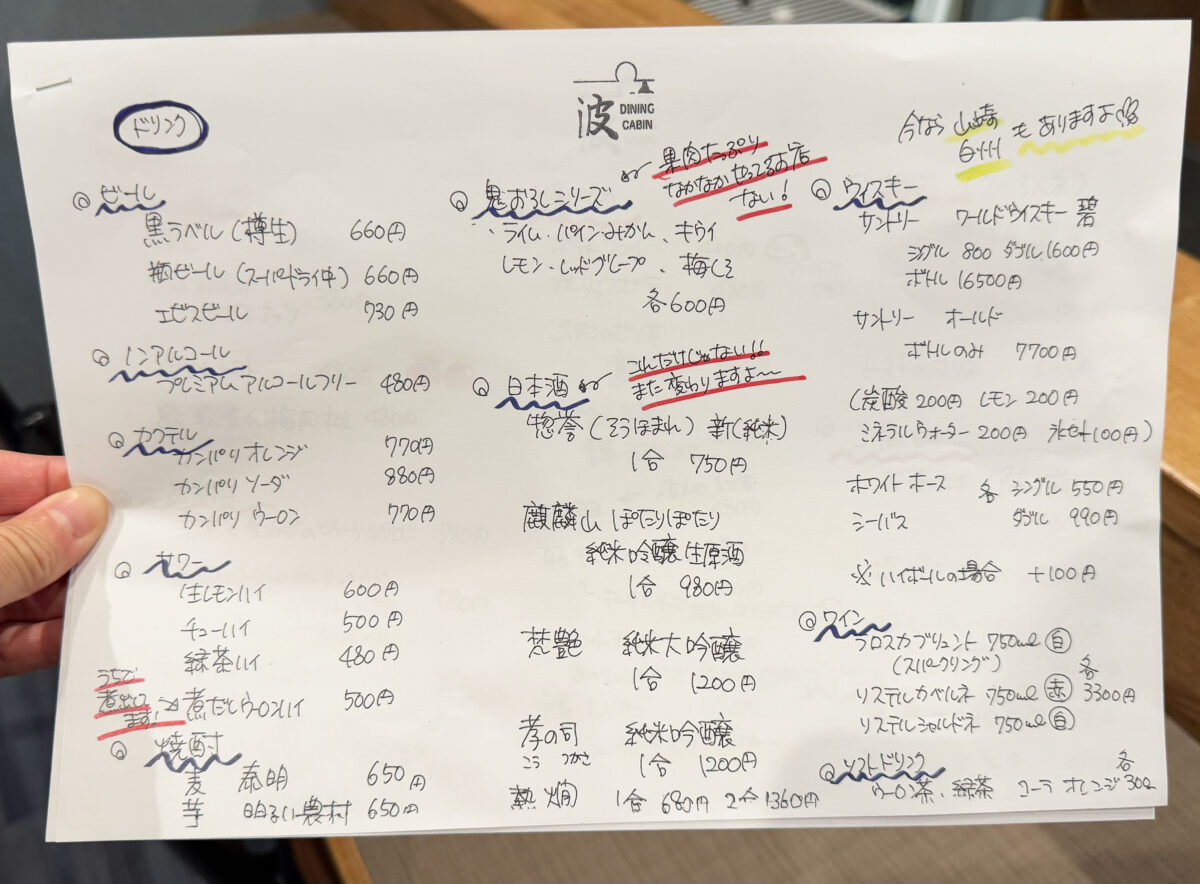 ドリンク
波 DINING CABIN
今なら 山崎
白州 も ありますよ
◎ ビール
黒ラベル (樽生) 660円
瓶ビール (スーパードライ中) 660円
エビスビール 730円
◎ ノンアルコール
プレミアムアルコールフリー 480円
◎ カクテル
カンパリオレンジ 770円
カンパリソーダ 880円
カンパリウーロン 770円
◎ サワー
生レモンハイ 600円
チューハイ 500円
緑茶ハイ 480円
うちで
煮出して
ます!
煮だしウーロンハイ 500円
◎ 焼酎
麦 泰明 650円
芋 明るい農村 650円
◎ 鬼おろしシリーズ
果肉たっぷり
なかなかやってるお店
ない!
ライム・パイン・みかん、キウイ
レモン・レッドグレープ、梅しそ
各600円
◎ 日本酒
これだけじゃない!!
また変わりますよ〜
惣誉 (そうほまれ) 新(純米)
1合 750円
麒麟山 ぽたりぽたり
純米吟醸生原酒
1合 980円
梵艶 純米大吟醸
1合 1200円
孝の司 純米吟醸
こう つかさ 1合 1200円
熱燗 1合 680円 2合 1360円
◎ ウィスキー
サントリー ワールドウイスキー 碧
シングル 800 ダブル 1600円
ボトル 16500円
サントリー オールド
ボトルのみ 7700円
(炭酸 200円 レモン 200円
ミネラルウォーター 200円 氷セット100円)
ホワイトホース 各 シングル 550円
シーバス ダブル 990円
※ ハイボールの場合 +100円
◎ ワイン
フロスカブリュント 750ml 白
(スパークリング)
リステルカベルネ 750ml 赤 各3300円
リステルシャルドネ 750ml 白
◎ ソフトドリンク
ウーロン茶、緑茶 コーラ オレンジ 各300